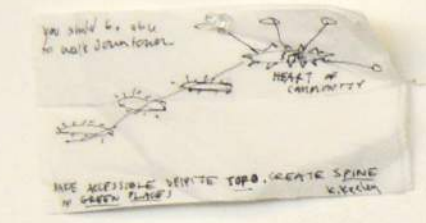 you should be able
to walk downtown
HEART OF
COMMUNITY
MAKE ACCESSIBLE DESPITE TOPO. CREATE SPINE
OF GREEN PLACES